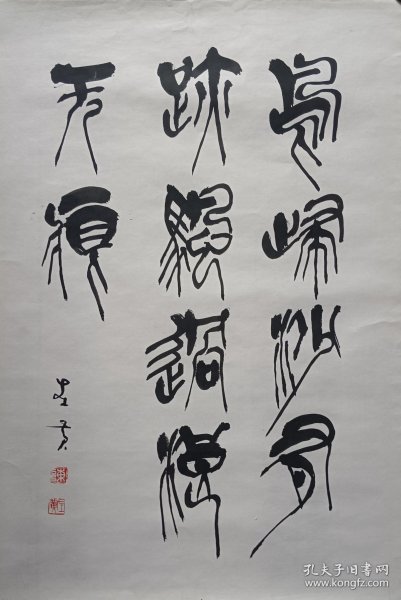 鸟归沙有
迹帆过浪
无痕
孔夫子旧书网
www.kongfz.com